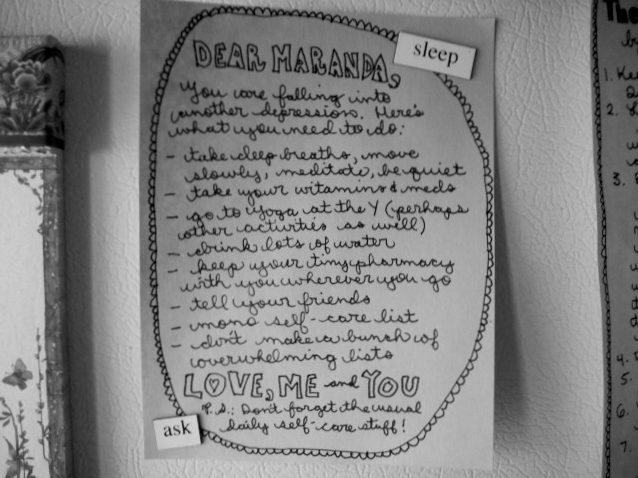 DEAR MARANDA,
sleep
you are falling into
another depression. Here's
what you need to do:
- take deep breaths, move
slowly, meditate, be quiet
- take your vitamins & meds
- go to yoga at the Y (perhaps
other activities as well)
- drink lots of water
- keep your tiny pharmacy
with you wherever you go
- tell your friends
- mono self-care list
- don't make a bunch of
overwhelming lists
LOVE, ME and YOU
P.S.: Don't forget the usual
daily self-care stuff!
ask
1.
2.
3.
4.
5.
6.
7.